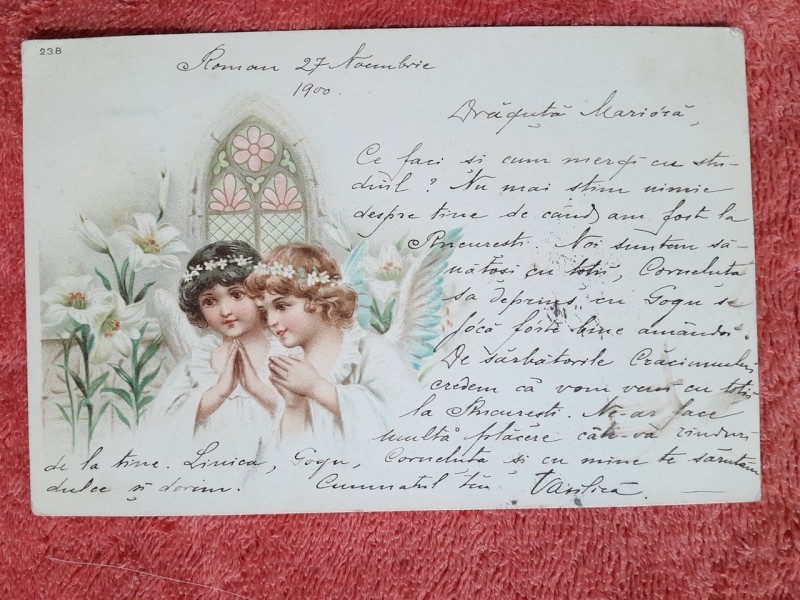 238
Roman 27 Noembrie
1900.
Drăguță Marióră,
Ce faci și cum mergi cu stu-
diul? Nu mai știm nimic
despre tine de când am fost la
București. Noi suntem să-
nătoși cu toții, Corneluța
să deprins, cu Gogu se
jócă fórte bine amândoi.
De sărbătorile Craciunului
credem că vom veni cu toții
la București. Ne-ar face
multă plăcere câte-va rînduri
de la tine. Linica, Gogu, Cornéluța și cu mine te sărutăm
dulce și dorim. Cumnatul tĕu Vasilică.